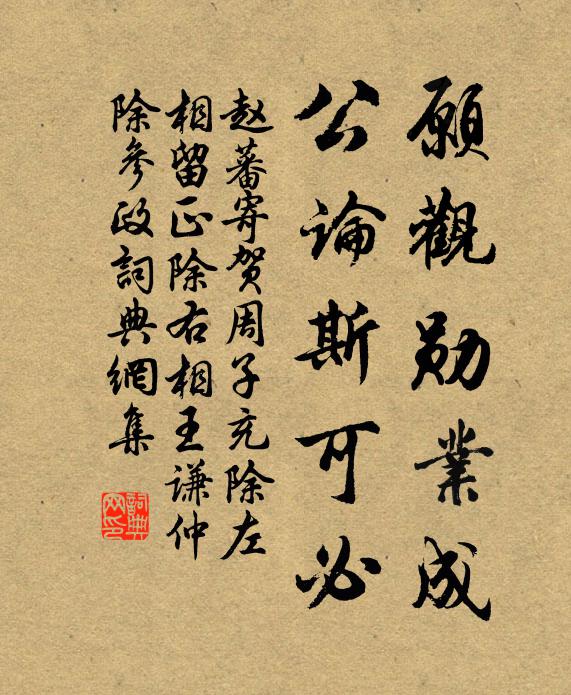 願觀勛業成
公論斯可必
赵蕃寄贺周子充除左
相留正除右相王谦仲
除參政詞典網集
詞典网印